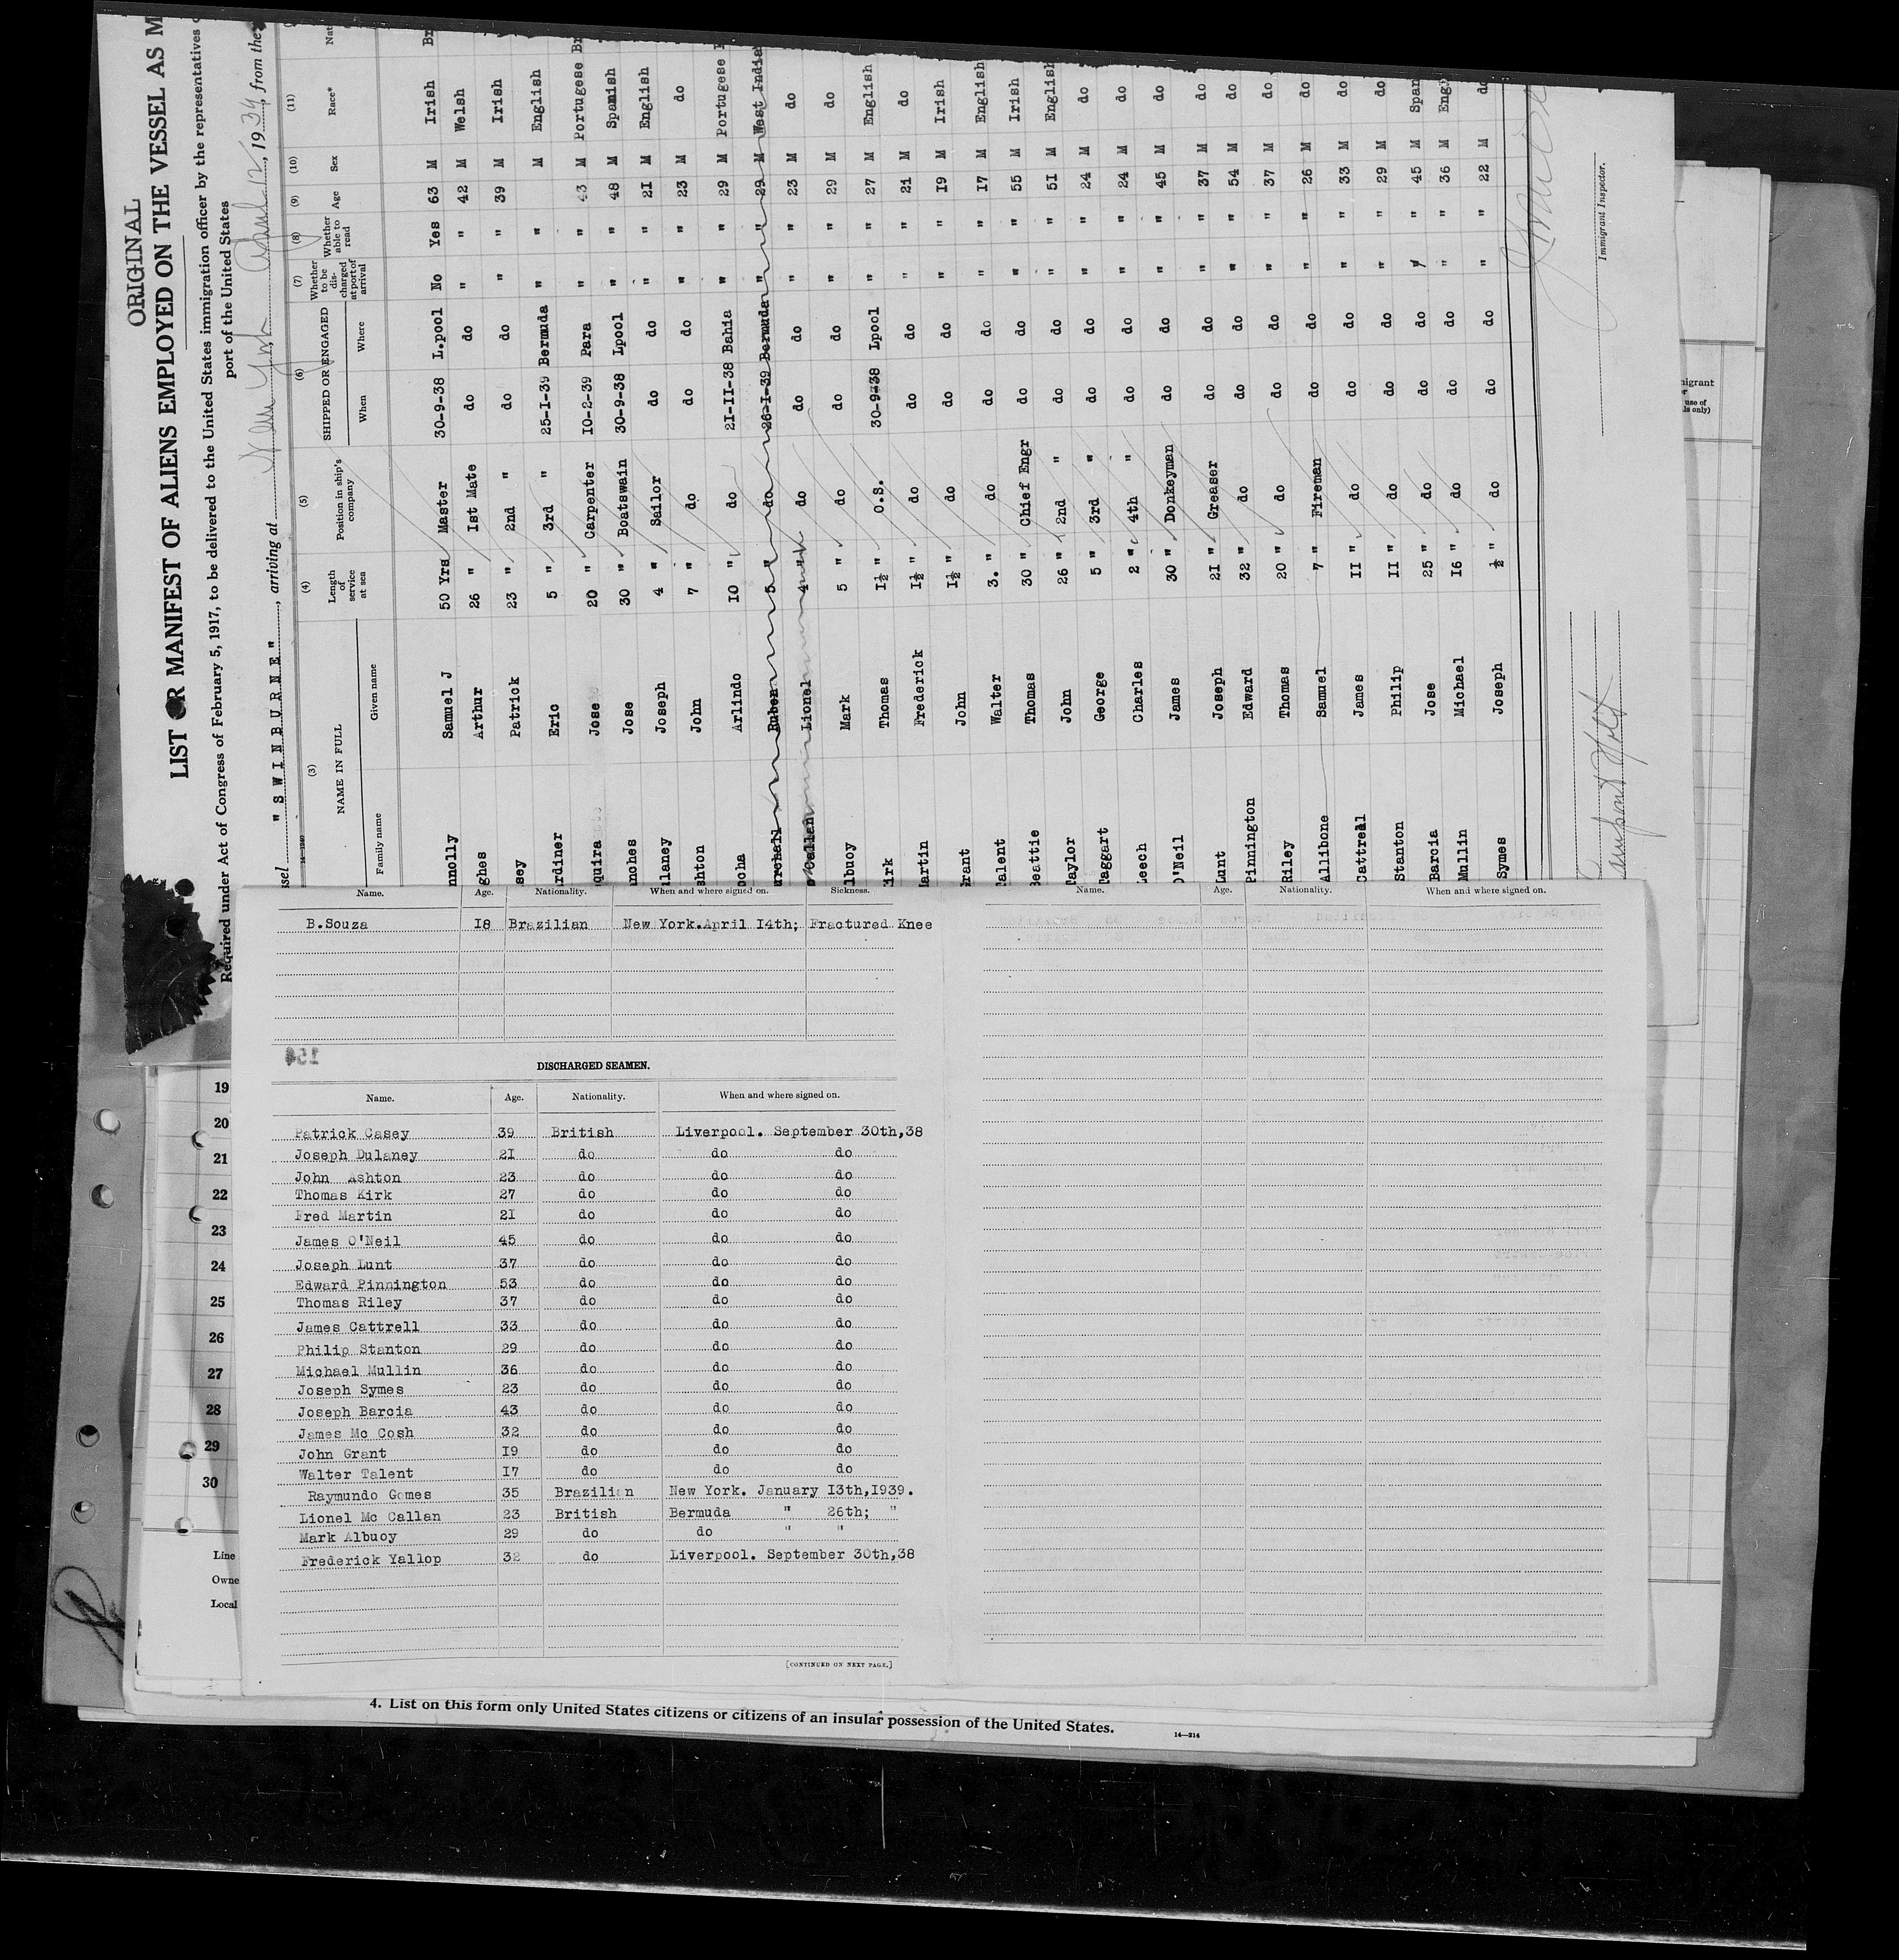 ORIGINAL
LIST OR MANIFEST OF ALIENS EMPLOYED ON THE VESSEL AS M
Required under Act of Congress of February 5, 1917, to be delivered to the United States immigration officer by the representatives
port of the United States
ssel "SWINBURNE", arriving at New York April 12, 1939, from the
(3) (4) (5) (6) (7) (8) (9) (10) (11)
NAME IN FULL Length of service at sea Position in ship's company SHIPPED OR ENGAGED Whether to be discharged at port of arrival Whether able to read Age Sex Race* Nat
Family name Given name When Where
nnolly Samuel J 50 Yrs Master 30-9-38 L.pool No Yes 63 M Irish Br
ghes Arthur 26 " 1st Mate do do " " 42 M Welsh
sey Patrick 23 " 2nd " do do " " 39 M Irish
rdiner Eric 5 " 3rd " 25-I-39 Bermuda " " M English
quira Jose 20 " Carpenter I0-2-39 Para " " 43 M Portugese Br
nches Jose 30 " Boatswain 30-9-38 Lpool " " 48 M Spanish
ulaney Joseph 4 " Sailor do do " " 2I M English
shton John 7 " do do do " " 23 M do
ocha Arlindo I0 " do 2I-II-38 Bahia " " 29 M Portugese
urchall Ruben 5 " do 26-I-39 Bermuda " " 29 M West India
c Callan Lionel 4 " do do do " " 23 M do
lbuoy Mark 5 " do do do " " 29 M do
irk Thomas I½ " O.S. 30-9-38 Lpool " " 27 M English
artin Frederick I½ " do do do " " 2I M do
rant John I½ " do do do " " I9 M Irish
alent Walter 3. " do do do " " I7 M English
eattie Thomas 30 " Chief Engr do do " " 55 M Irish
Taylor John 26 " 2nd " do do " " 5I M English
Taggart George 5 " 3rd " do do " " 24 M do
Leech Charles 2 " 4th " do do " " 24 M do
O'Neil James 30 " Donkeyman do do " " 45 M do
Lunt Joseph 2I " Greaser do do " " 37 M do
Pinnington Edward 32 " do do do " " 54 M do
Riley Thomas 20 " do do do " " 37 M do
Allibone Samuel 7 " Fireman do do " " 26 M do
Cattrell James II " do do do " " 33 M do
Stanton Philip II " do do do " " 29 M do
Barcia Jose 25 " do do do " " 45 M Span
Mullin Michael I6 " do do do " " 36 M Eng
Symes Joseph ½ " do do do " " 22 M do
Immigrant Inspector.
Name. Age. Nationality. When and where signed on. Sickness.
B.Souza I8 Brazilian New York.April I4th; Fractured Knee
DISCHARGED SEAMEN.
Name. Age. Nationality. When and where signed on.
Patrick Casey 39 British Liverpool. September 30th,38
Joseph Dulaney 2I do do do
John Ashton 23 do do do
Thomas Kirk 27 do do do
Fred Martin 2I do do do
James O'Neil 45 do do do
Joseph Lunt 37 do do do
Edward Pinnington 53 do do do
Thomas Riley 37 do do do
James Cattrell 33 do do do
Philip Stanton 29 do do do
Michael Mullin 36 do do do
Joseph Symes 23 do do do
Joseph Barcia 43 do do do
James Mc Cosh 32 do do do
John Grant I9 do do do
Walter Talent I7 do do do
Raymundo Gomes 35 Brazilian New York. January I3th,I939.
Lionel Mc Callan 23 British Bermuda " 26th; "
Mark Albuoy 29 do do " "
Frederick Yallop 32 do Liverpool. September 30th,38
[CONTINUED ON NEXT PAGE.]
Name. Age. Nationality. When and where signed on.
19
20
21
22
23
24
25
26
27
28
29
30
Line
Owne
Local
migrant
use of
ls only)
4. List on this form only United States citizens or citizens of an insular possession of the United States.
14—214